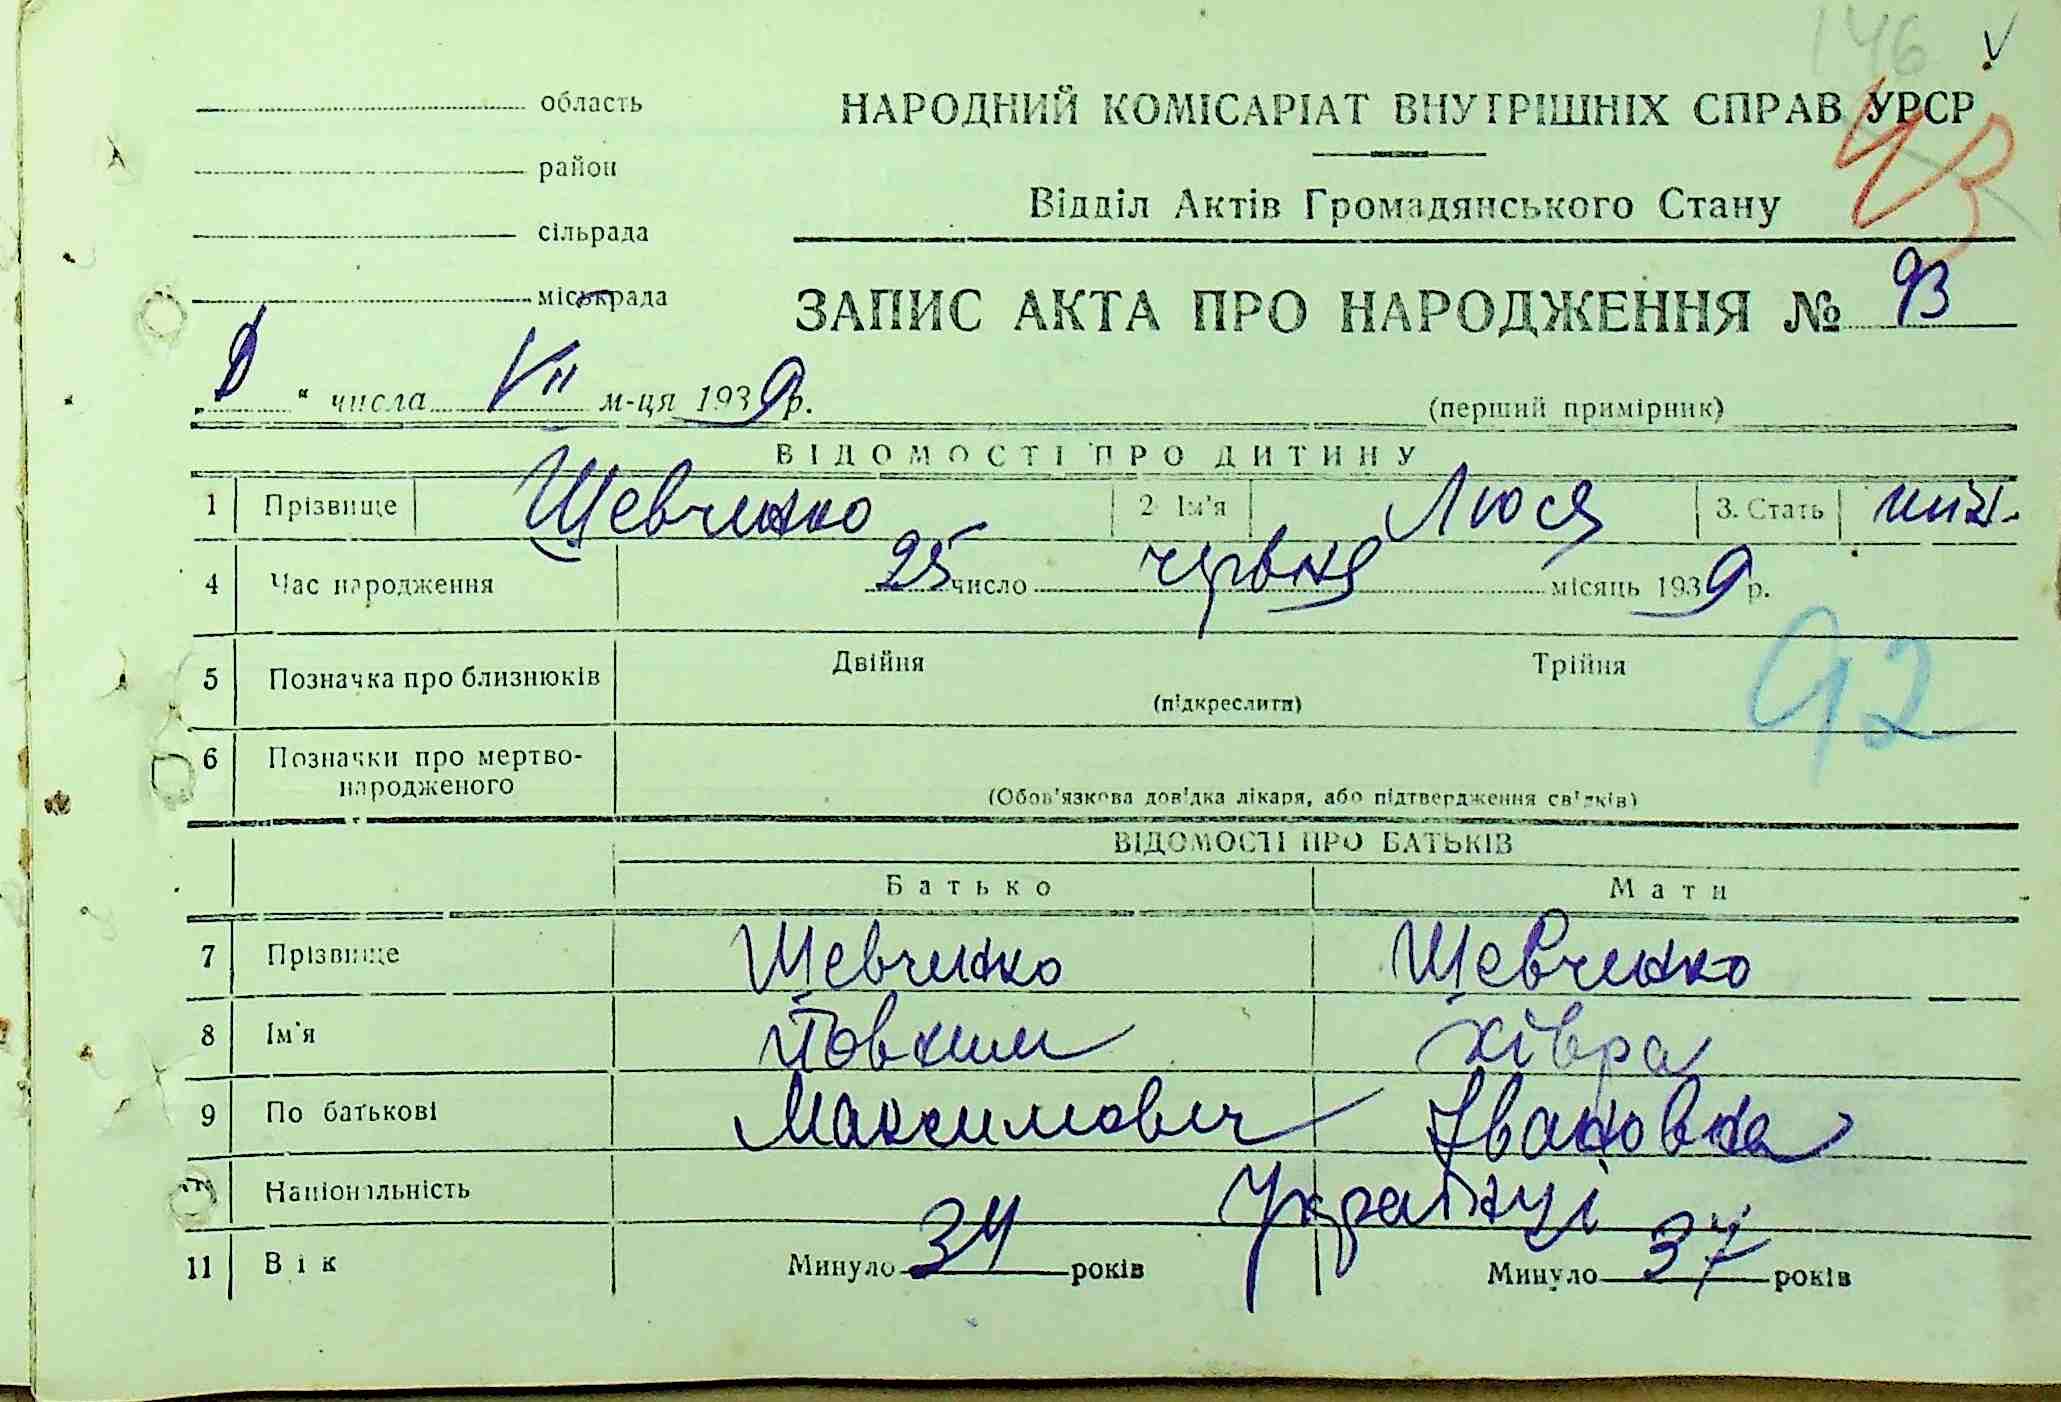 146 v
область
НАРОДНИЙ КОМІСАРІАТ ВНУТРІШНІХ СПРАВ УРСР
район
93
Відділ Актів Громадянського Стану
сільрада
міськрада
ЗАПИС АКТА ПРО НАРОДЖЕННЯ № 93
„ “ числа VII м-ця 1939 р.
(перший примірник)
ВІДОМОСТІ ПРО ДИТИНУ
1 Прізвище Шевченко 2. Ім'я Люся 3. Стать
4 Час народження 25 число червня місяць 1939 р.
5 Позначка про близнюків Двійня Трійня
(підкреслити)
92
6 Позначки про мертво-
народженого
(Обов'язкова довідка лікаря, або підтвердження свідків)
ВІДОМОСТІ ПРО БАТЬКІВ
Батько Мати
7 Прізвище Шевченко Шевченко
8 Ім'я Хівра
9 По батькові Максимович Івановна
Національність Українці
11 Вік Минуло 34 років Минуло 37 років